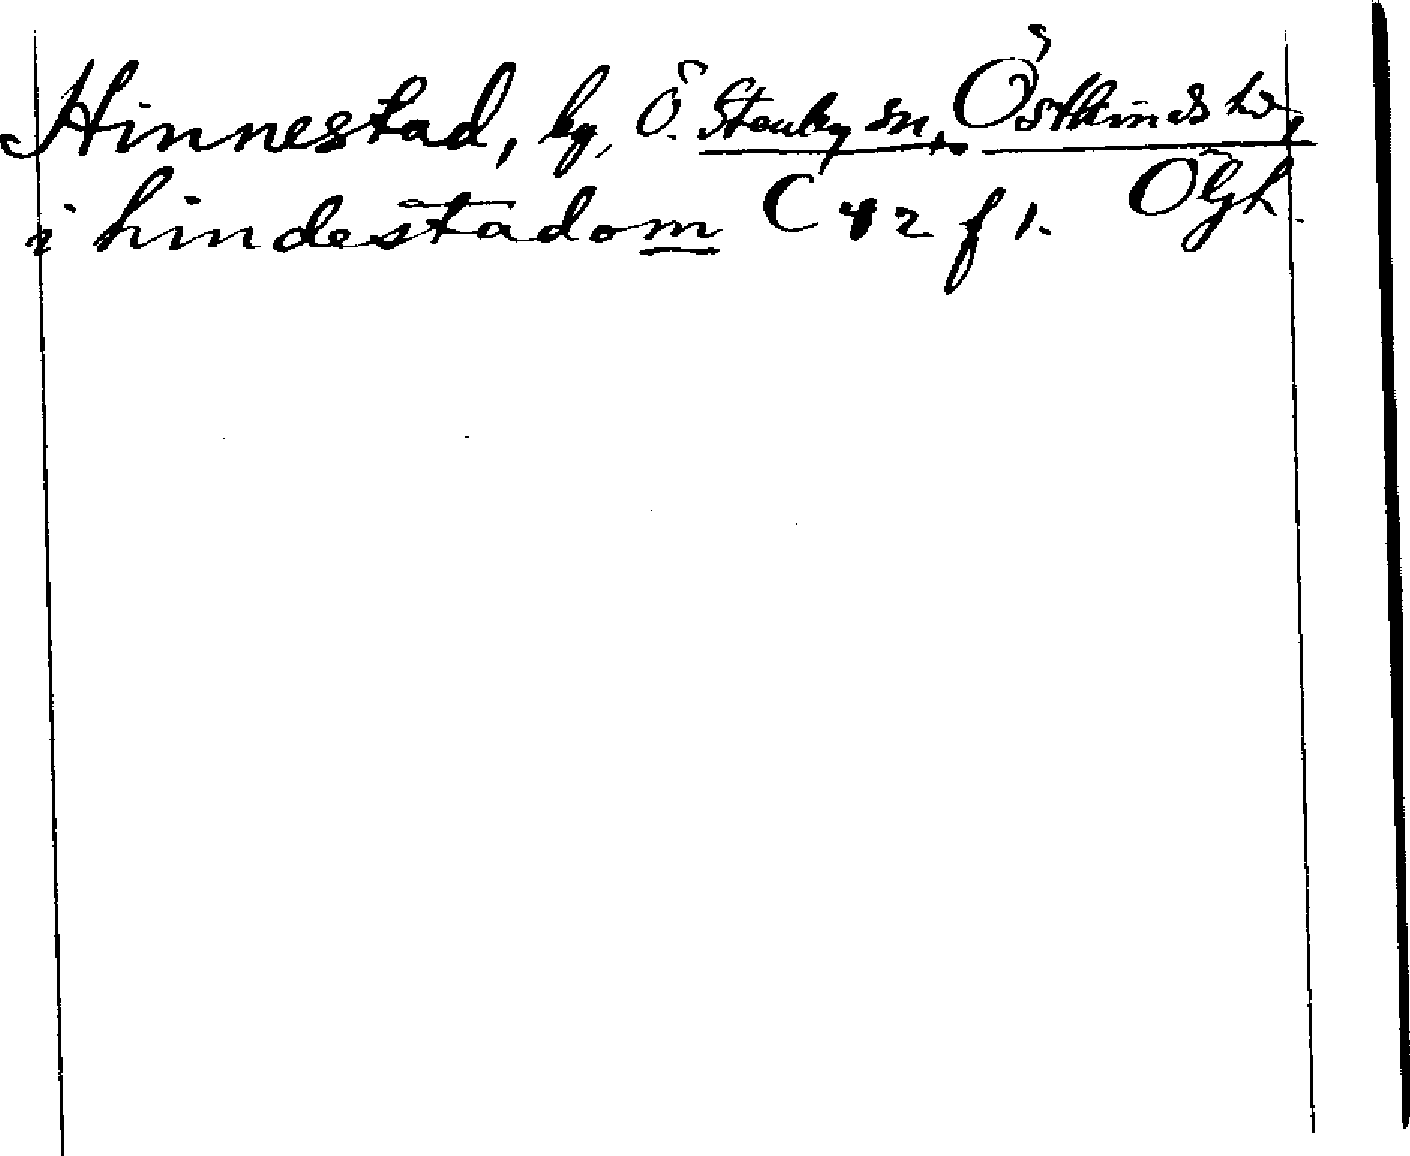 Hinnestad, by, Ö. Stenby sn, Östkinds hd,
i hindestadom C 42 f 1. Ögl.